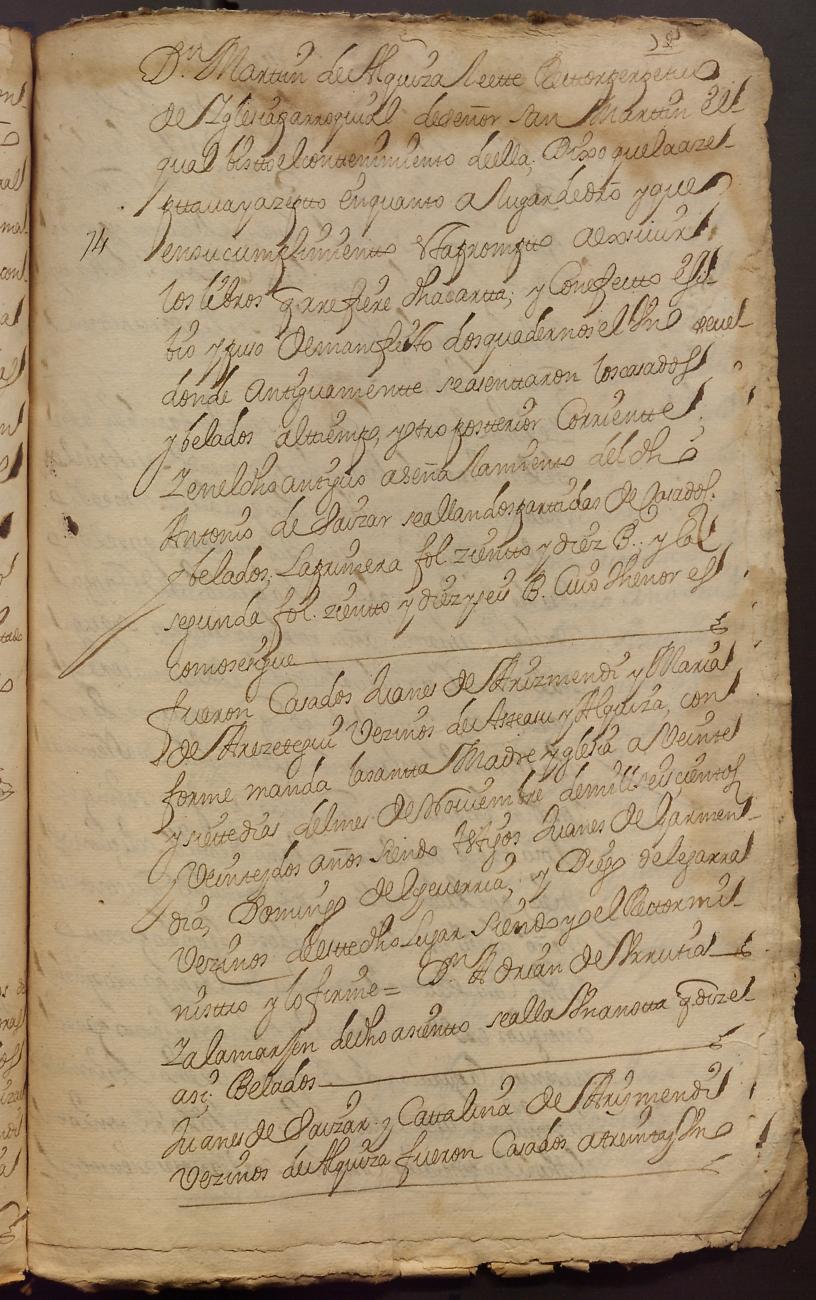 18
Dn Martin de Alquiza Leette Rettor perpetuo
de Yglesia parroquial deseñor san Marttin El
qual bistto el conttenimiento deella, Dixo que la aze-
pttava y azepto Enquanto a lugar dedro y que
74
en su cumplimientto esta prompto a exsivir
los libros q rrefiere dha cartta; y Con efectto
bio y puso demanifiesto dos quadernos el Vno
donde Antiguamentte se asenttaron los casados
y belados altiempo, y otro postterior Corriente
Z en el dho antiguo a señalamiento del dho
Antonio de Sauzar se allan dos partidas de Casados
y belados, La primera fol. zientto y diez B. y la
segunda fol. zientto y diez y seis B. Cuio thenor es
como se sigue
fueron Casados Juanes de Arizmendi y Maria
de Arezetegui Vezinos de Asteasu y Alquiza, con
forme manda la santta Madre yglesia a Veinte
y siette dias del mes de Noviembre de mill seiscientos
Veinte y dos años siendo testigos Juanes de Garmen-
dia, Domingo de Egueurria, y Diego de legarra
Vezinos de este dho Lugar siendo yo el Rettor mi-
nisttro y lo firme = Dn Adrian de Yrrutia
Z al amarjen de dho asientto se alla Vna notta q dize
asi; Belados
Juanes de Sauzar y Cattalina de Arizmendi
Vezinos de Alquiza fueron Casados a treinta y Vn